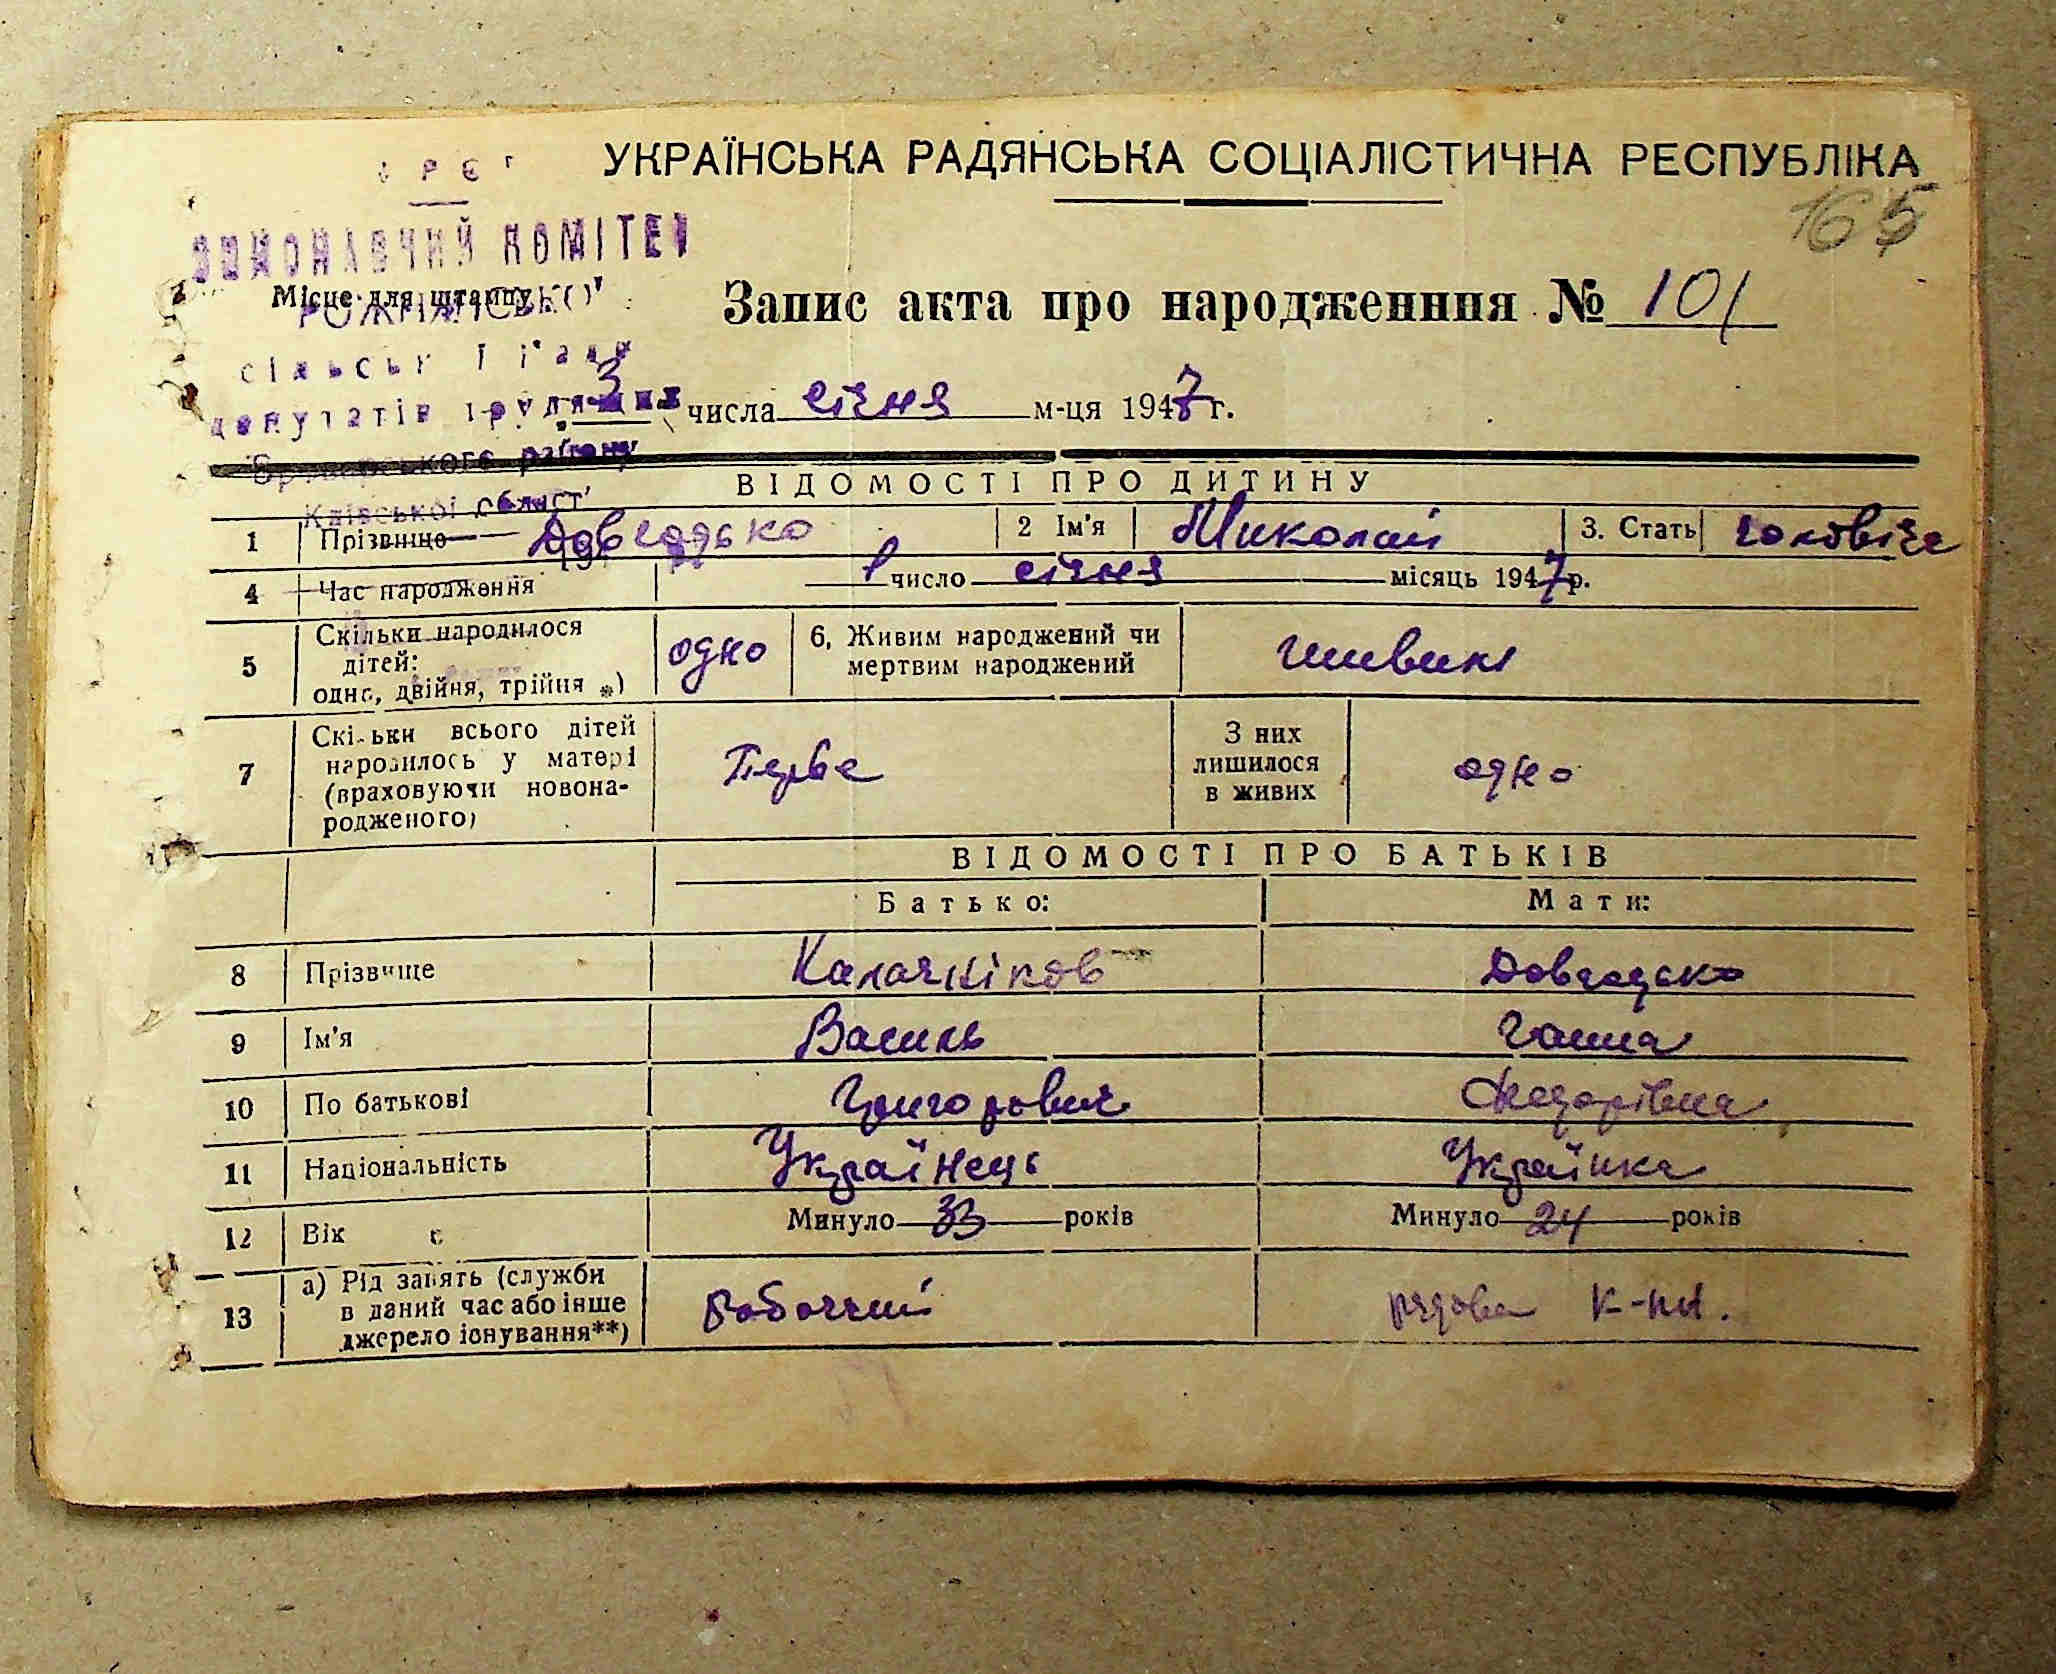 УКРАЇНСЬКА РАДЯНСЬКА СОЦІАЛІСТИЧНА РЕСПУБЛІКА
165
ВИКОНАВЧИЙ КОМІТЕТ
Місце для штампу
Запис акта про народженння № 101
депутатів трудящих
3 числа січня м-ця 1947 г.
Броварського району
Київської област
ВІДОМОСТІ ПРО ДИТИНУ
1 Прізвище Довгодько 2 Ім'я Миколай 3. Стать чоловіче
4 Час народження 1 число січня місяць 1947 р.
5 Скільки народилося дітей: одно, двійня, трійня *) одно 6, Живим народжений чи мертвим народжений живим
7 Скільки всього дітей народилось у матері (враховуючи новонародженого) Перве З них лишилося в живих одно
ВІДОМОСТІ ПРО БАТЬКІВ
Батько: Мати:
8 Прізвище Калачніков Довгодько
9 Ім'я Василь Ганна
10 По батькові Григорович Федорівна
11 Національність Українець Українка
12 Вік Минуло 33 років Минуло 24 років
13 а) Рід занять (служби в даний час або інше джерело існування**) Робочий рядова к-пи.